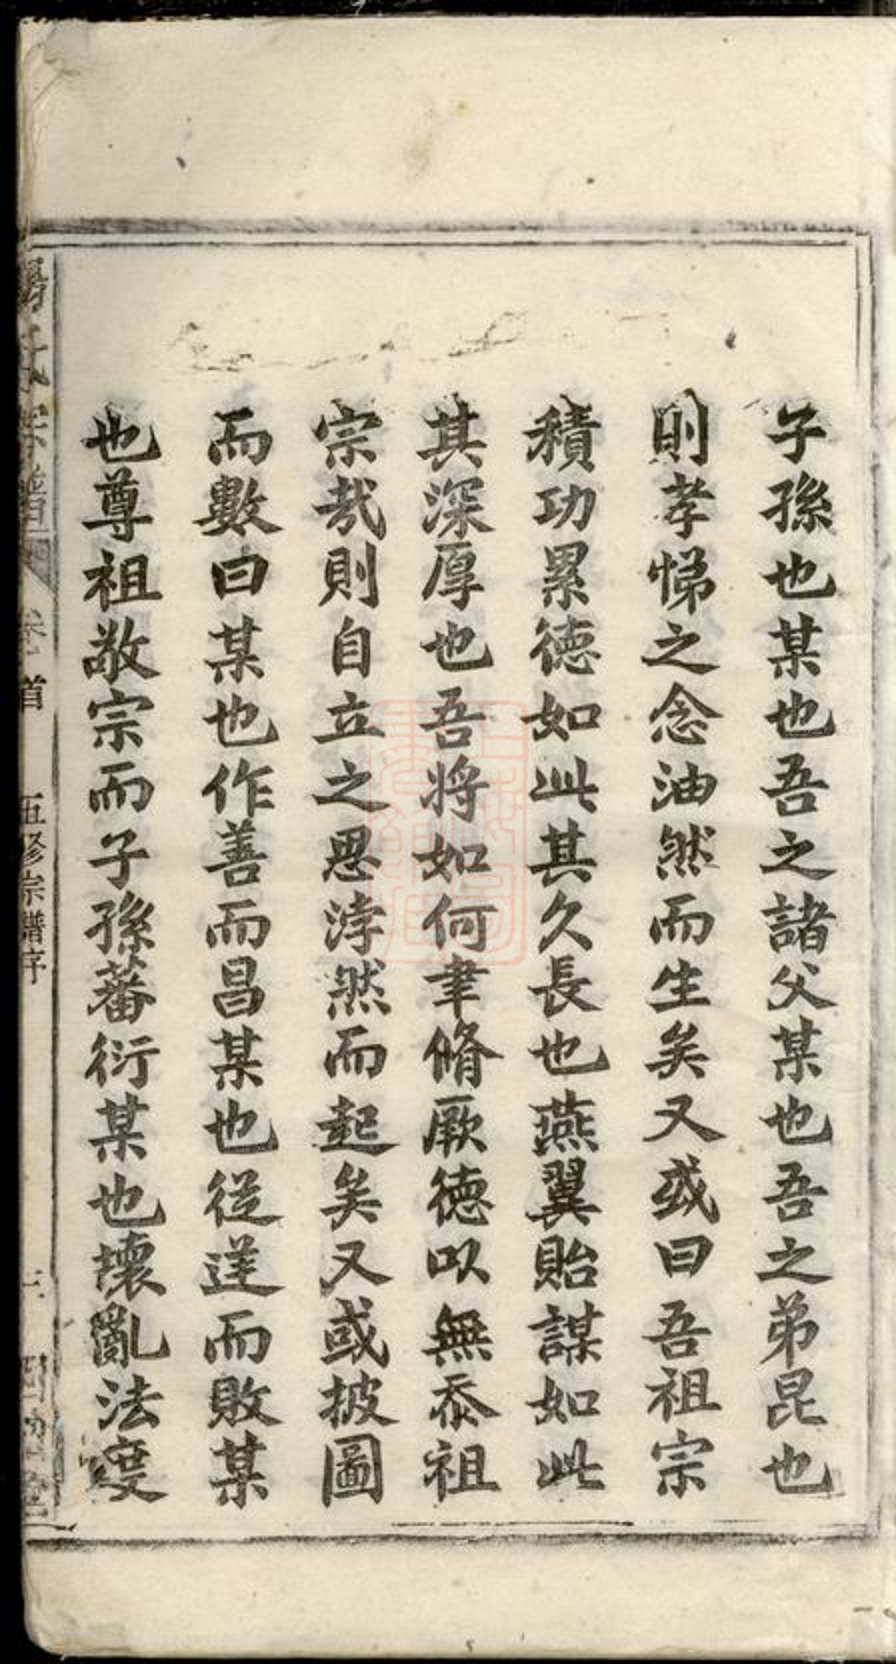 子孫也某也吾之諸父某也吾之弟昆也
則孝悌之念油然而生矣又或曰吾祖宗
積功累德如此其久長也燕翼貽謀如此
其深厚也吾將如何聿脩厥德以無忝祖
宗哉則自立之思浡然而起矣又或披圖
而數曰某也作善而昌某也從逆而敗某
也尊祖敬宗而子孫蕃衍某也壞亂法度
氏宗譜 卷首 五修宗譜序